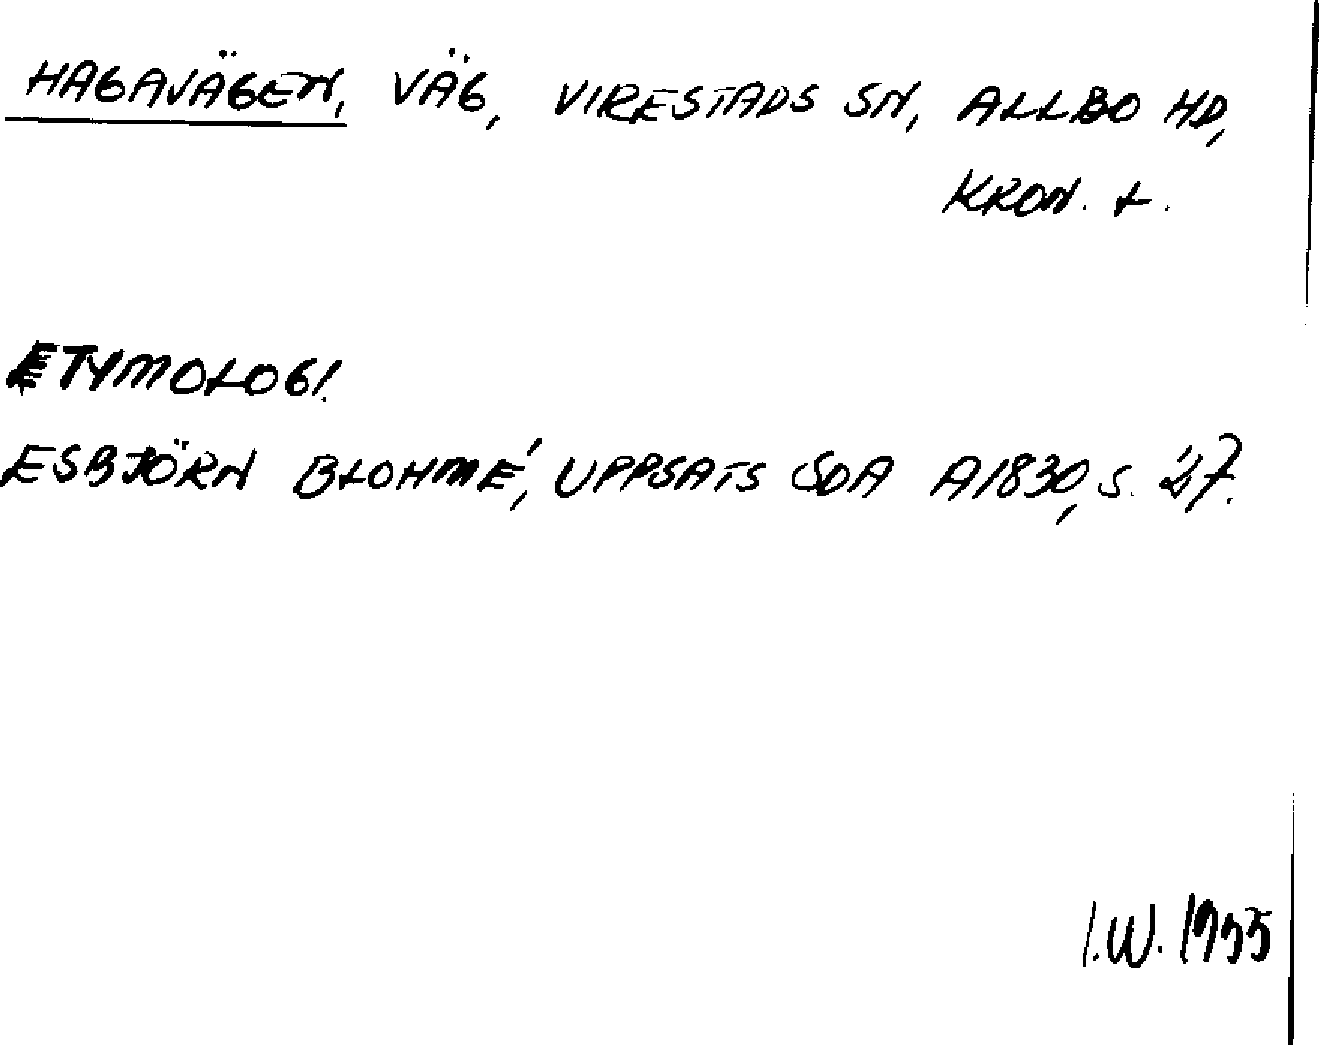 HAGAVÄGEN, VÄG, VIRESTADS SN, ALLBO HD,
KRON. L.
ETYMOLOGI.
ESBJÖRN BLOHMÉ, UPPSATS SOA A1830, S. 27.
I.W. 1955